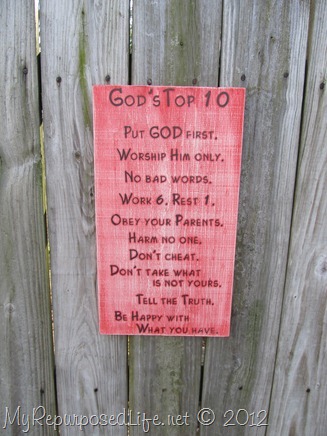 God's Top 10
Put GOD first.
Worship Him only.
No bad words.
Work 6, Rest 1.
Obey your Parents.
Harm no one.
Don't cheat.
Don't take what
is not yours.
Tell the Truth.
Be Happy with
What you have.
MyRepurposedLife.net © 2012